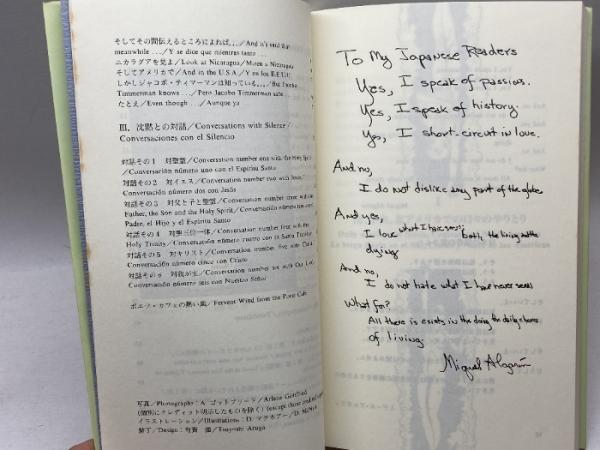 そしてその間伝えるところによれば... / And it's said that
meanwhile ... / Y se dice que mientras tanto ...
ニカラグアを見よ / Look at Nicaragua / Miren a Nicaragua
そしてアメリカで / And in the U.S.A / Y en los E.E.U.U.
しかしジャコボ・ティマーマンは知っている... / But Jacobo
Timmerman knows ... / Pero Jacobo Timmerman sabe ...
たとえ / Even though ... / Aunque ya
III. 沈黙との対話 / Conversations with Silence /
Conversaciones con el Silencio
対話その1 対聖霊 / Conversation number one with the Holy Spirit
/ Conversación número uno con el Espíritu Santo
対話その2 対イエス / Conversation number two with Jesus /
Conversación número dos con Jesús
対話その3 対父と子と聖霊 / Conversation number three with the
Father, the Son and the Holy Spirit / Conversación número tres con
Padre, el Hijo y el Espíritu Santo
対話その4 対聖三位一体 / Conversation number four with the
Holy Trinity / Conversación número cuatro con la Santa Trinidad
対話その5 対キリスト / Conversation number five with Christ
Conversación número cinco con Cristo
対話その6 対我が主 / Conversation number six with Our Lord
Conversación número seis con Nuestro Señor
ポエツ・カフェの熱い風 / Fervent Wind from the Poets Cafe
写真 / Photographs : A. ゴットフリード / Arlene Gottfried
(個別にクレディット明示したものを除く) (except those credited
イラストレーション / Illustrations : D. マクネアー / D. McN
装丁 / Design : 有賀 強 / Tsuyoshi Aruga
To My Japanese Readers
Yes, I speak of passion.
Yes, I speak of history.
Yes, I short-circuit in love.
And no,
I do not dislike any part of the globe
And yes,
I love what I have seen; both, the living and the
dying
And no,
I do not hate what I have never seen
What for?
All there is exists in the doing the daily chores
of living.
Miguel Algarín